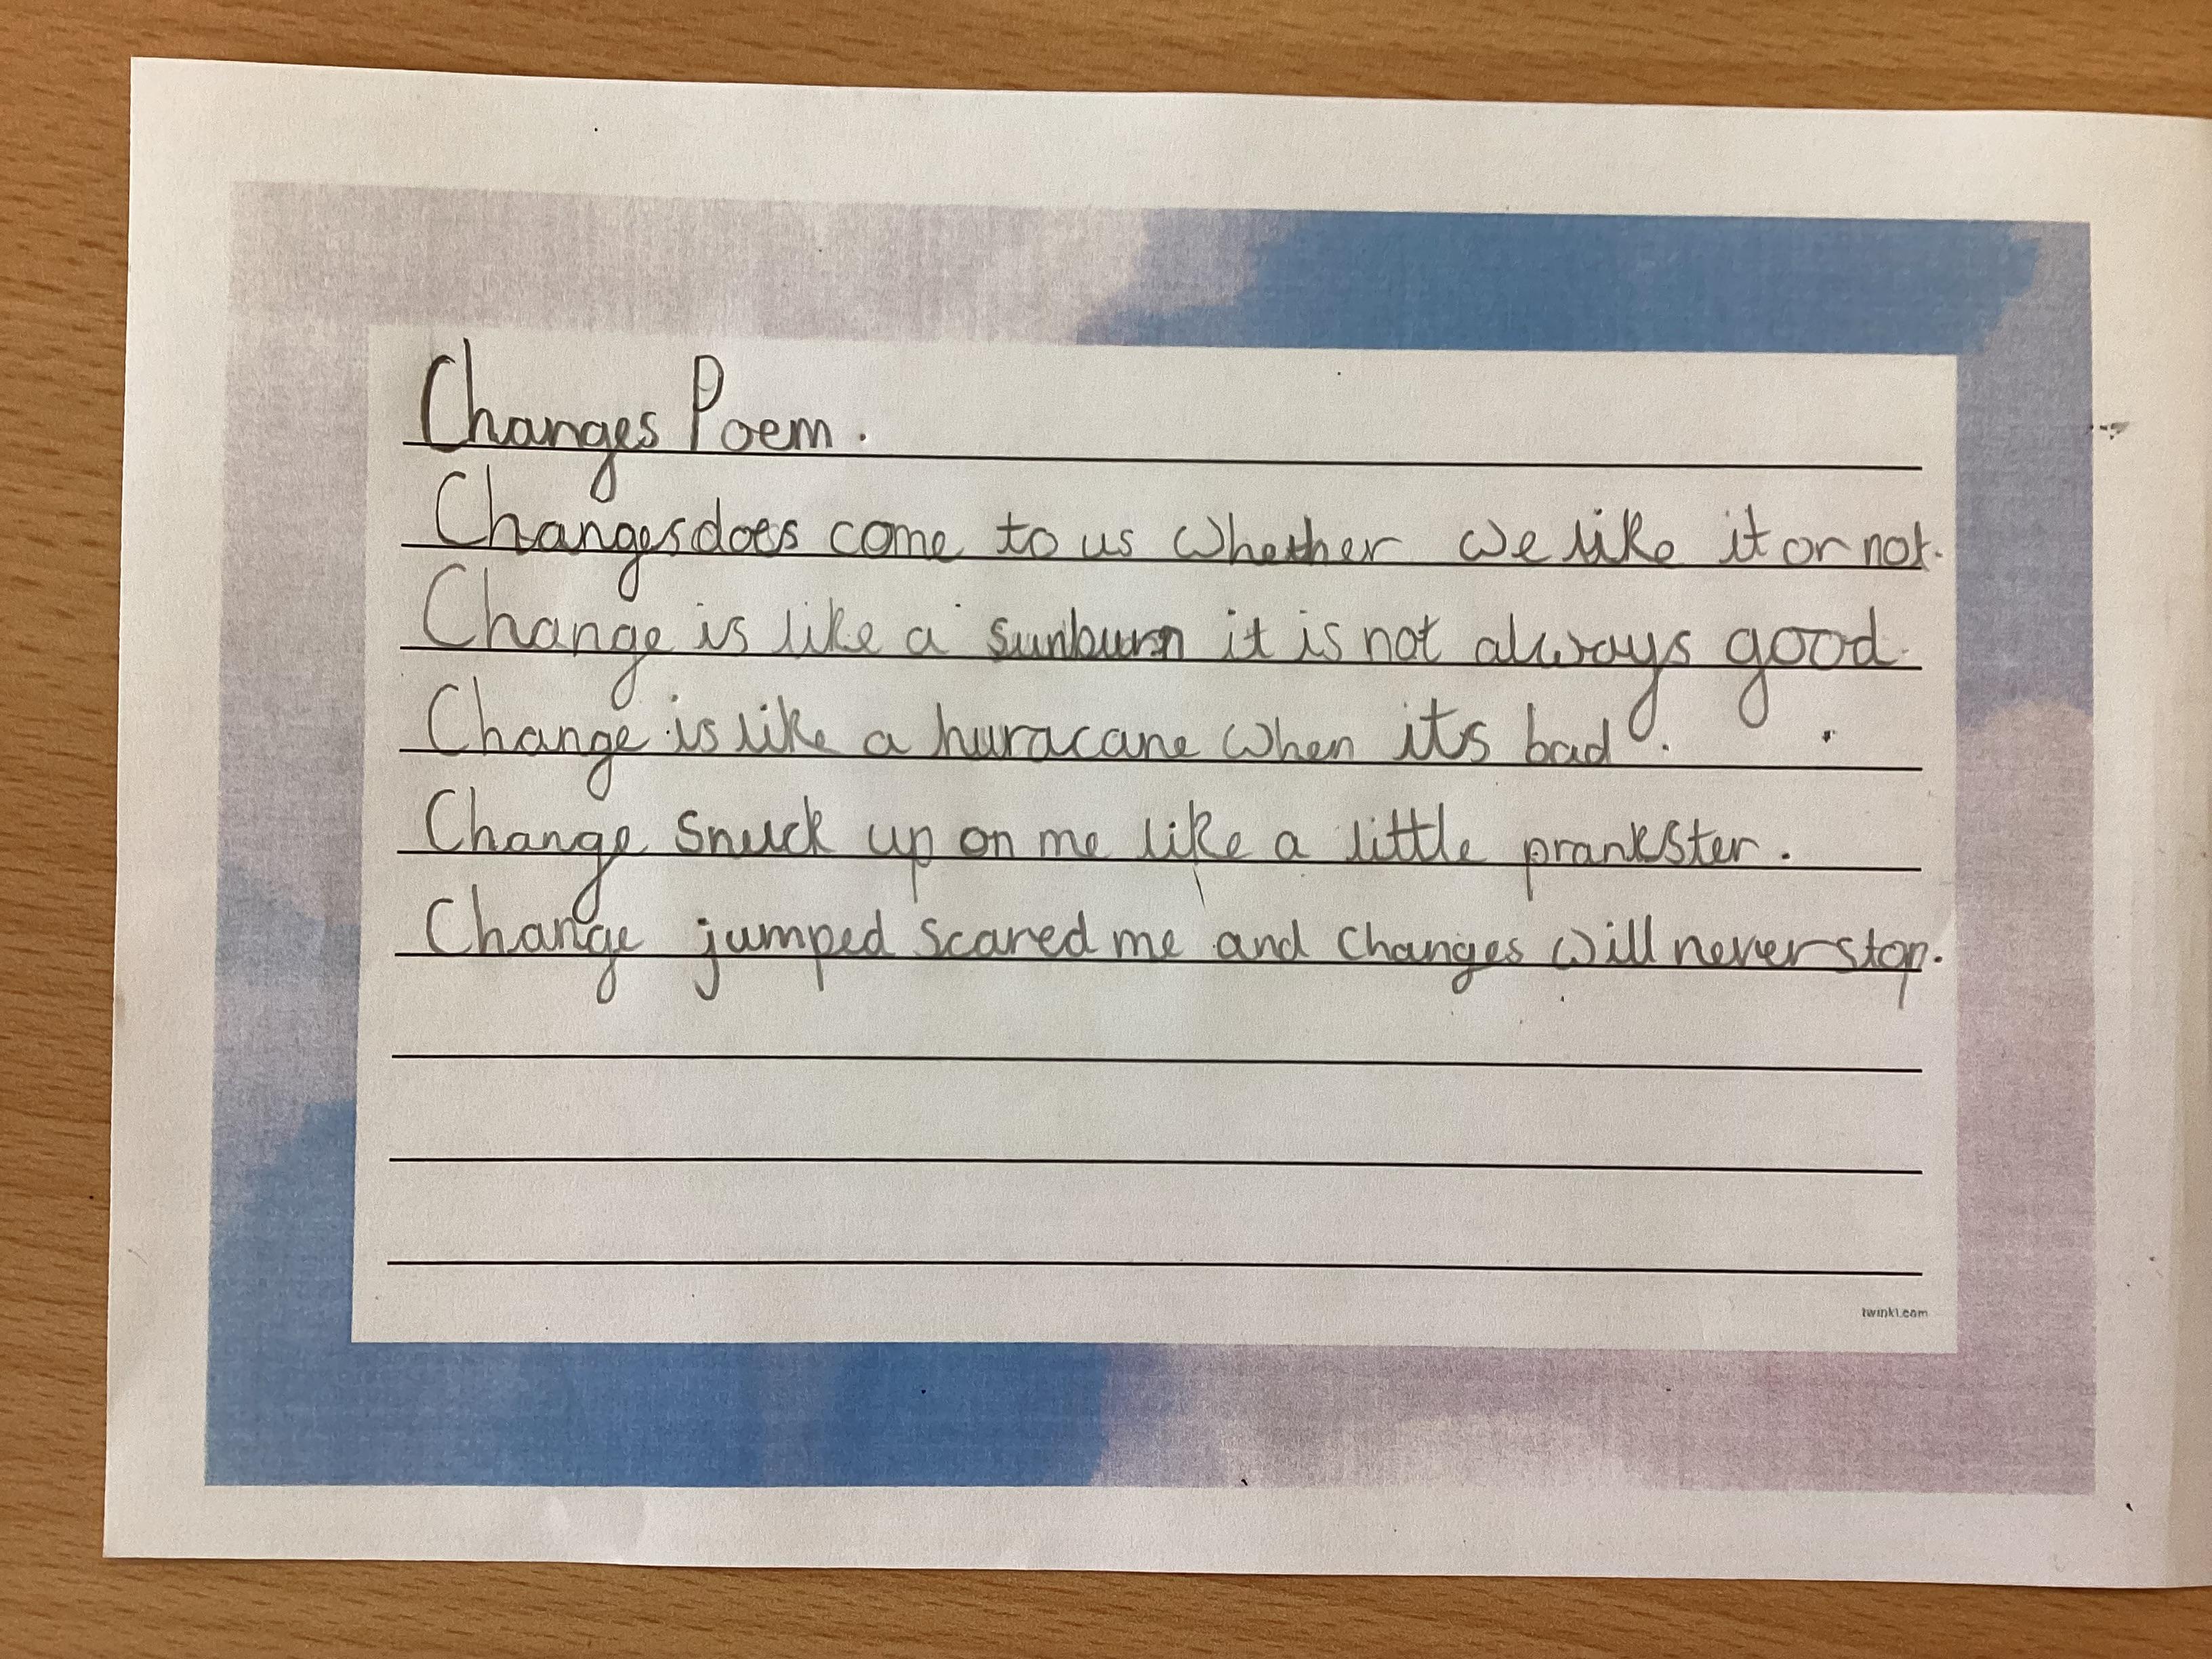 Changes Poem.
Changes does come to us whether we like it or not.
Change is like a sunburn it is not always good.
Change is like a huracane when its bad.
Change snuck up on me like a little prankster.
Change jumped scared me and changes will never stop.
twinkl.com